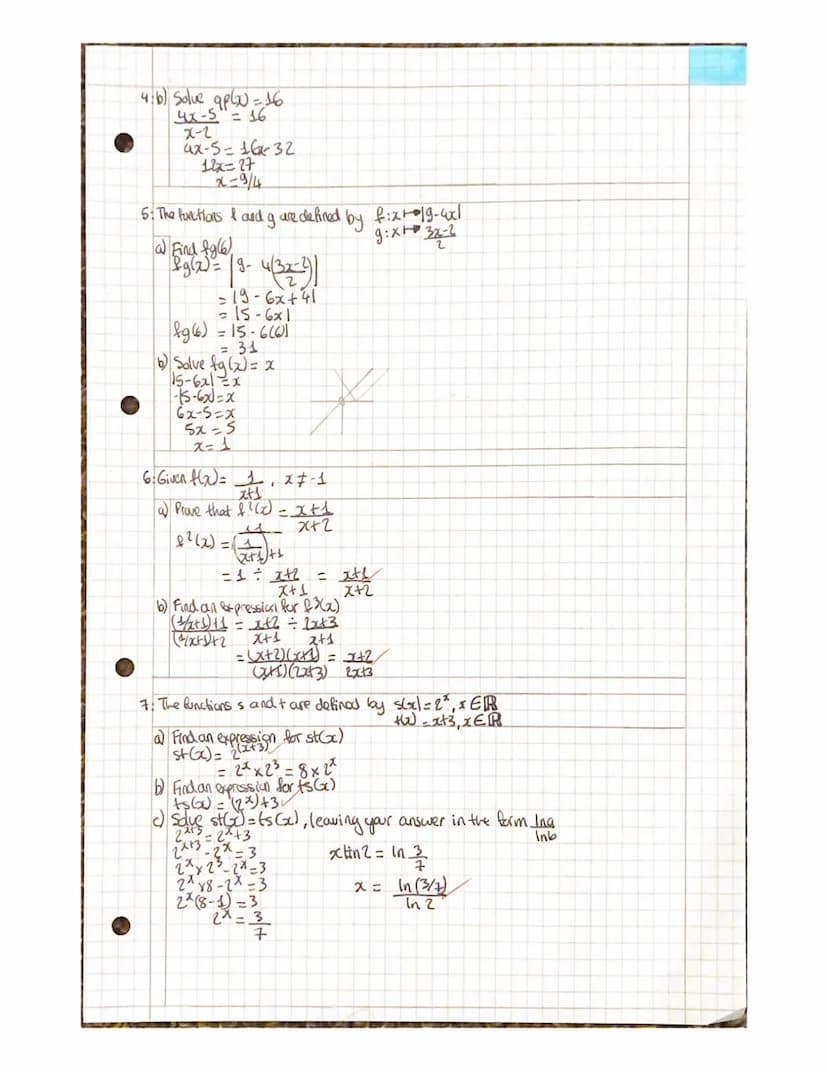 4: b) Solve qp(x) = 16
4x-5 / x-2 = 16
4x-5 = 16x-32
12x = 27
x = 9/4
5: The functions f and g are defined by f: x ↦ |9-4x|
g: x ↦ 3x-2 / 2
a) Find fg(6)
fg(x) = |9 - 4(3x-2 / 2)|
= |9 - 6x + 4|
= |5 - 6x|
fg(6) = |5 - 6(6)|
= 31
b) Solve fg(x) = x
|5-6x| = x
-(5-6x) = x
6x-5 = x
5x = 5
x = 1
6: Given f(x) = 1 / x+1 , x ≠ -1
a) Prove that f²(x) = x+1 / x+2
f²(x) = 1 / (1 / x+1)+1
= 1 ÷ x+2 / x+1 = x+1 / x+2
b) Find an expression for f³(x)
(1/x+1)+1 / (1/x+1)+2 = x+2 / x+1 ÷ 2x+3 / x+1
= (x+2)(x+1) / (x+1)(2x+3) = x+2 / 2x+3
7: The functions s and t are defined by s(x) = 2ˣ, x ∈ ℝ
t(x) = x+3, x ∈ ℝ
a) Find an expression for st(x)
st(x) = 2^(x+3)
= 2ˣ × 2³ = 8 × 2ˣ
b) Find an expression for ts(x)
ts(x) = (2ˣ)+3
c) Solve st(x) = ts(x), leaving your answer in the form lna / lnb
2ˣ⁺³ = 2ˣ+3
2ˣ⁺³ - 2ˣ = 3
2ˣ × 2³ - 2ˣ = 3
2ˣ × 8 - 2ˣ = 3
2ˣ(8-1) = 3
2ˣ = 3 / 7
x ln 2 = ln 3 / 7
x = ln(3/7) / ln 2